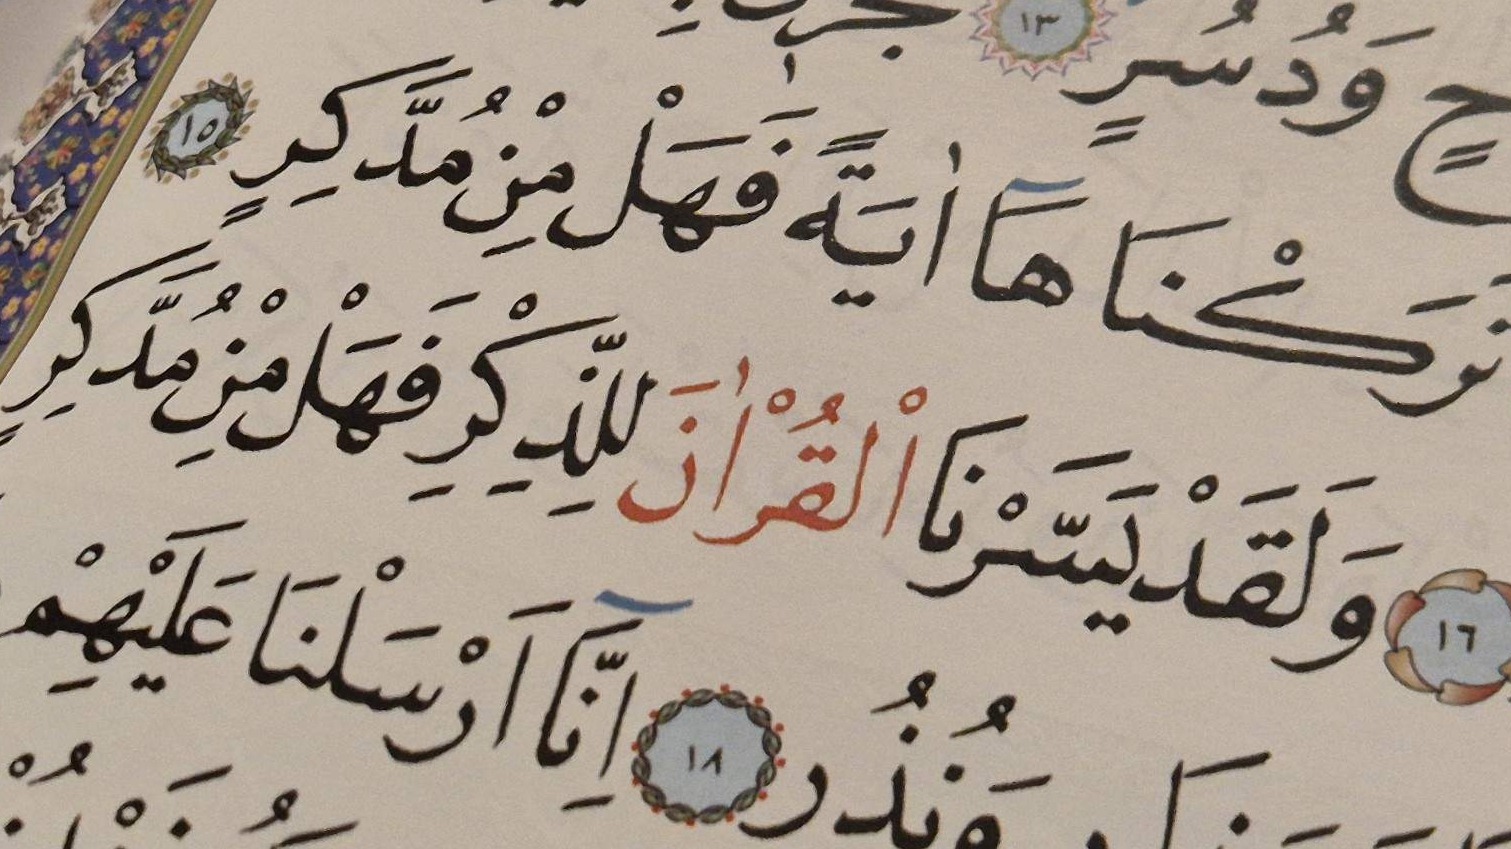 حٍ وَدُسُرٍ ١٣
تَرَكْنَاهَا اٰيَةً فَهَلْ مِنْ مُدَّكِرٍ ١٥
١٦ وَلَقَدْ يَسَّرْنَا الْقُرْاٰنَ لِلذِّكْرِ فَهَلْ مِنْ مُدَّكِرٍ
وَنُذُرِ ١٨ اِنَّا اَرْسَلْنَا عَلَيْهِمْ